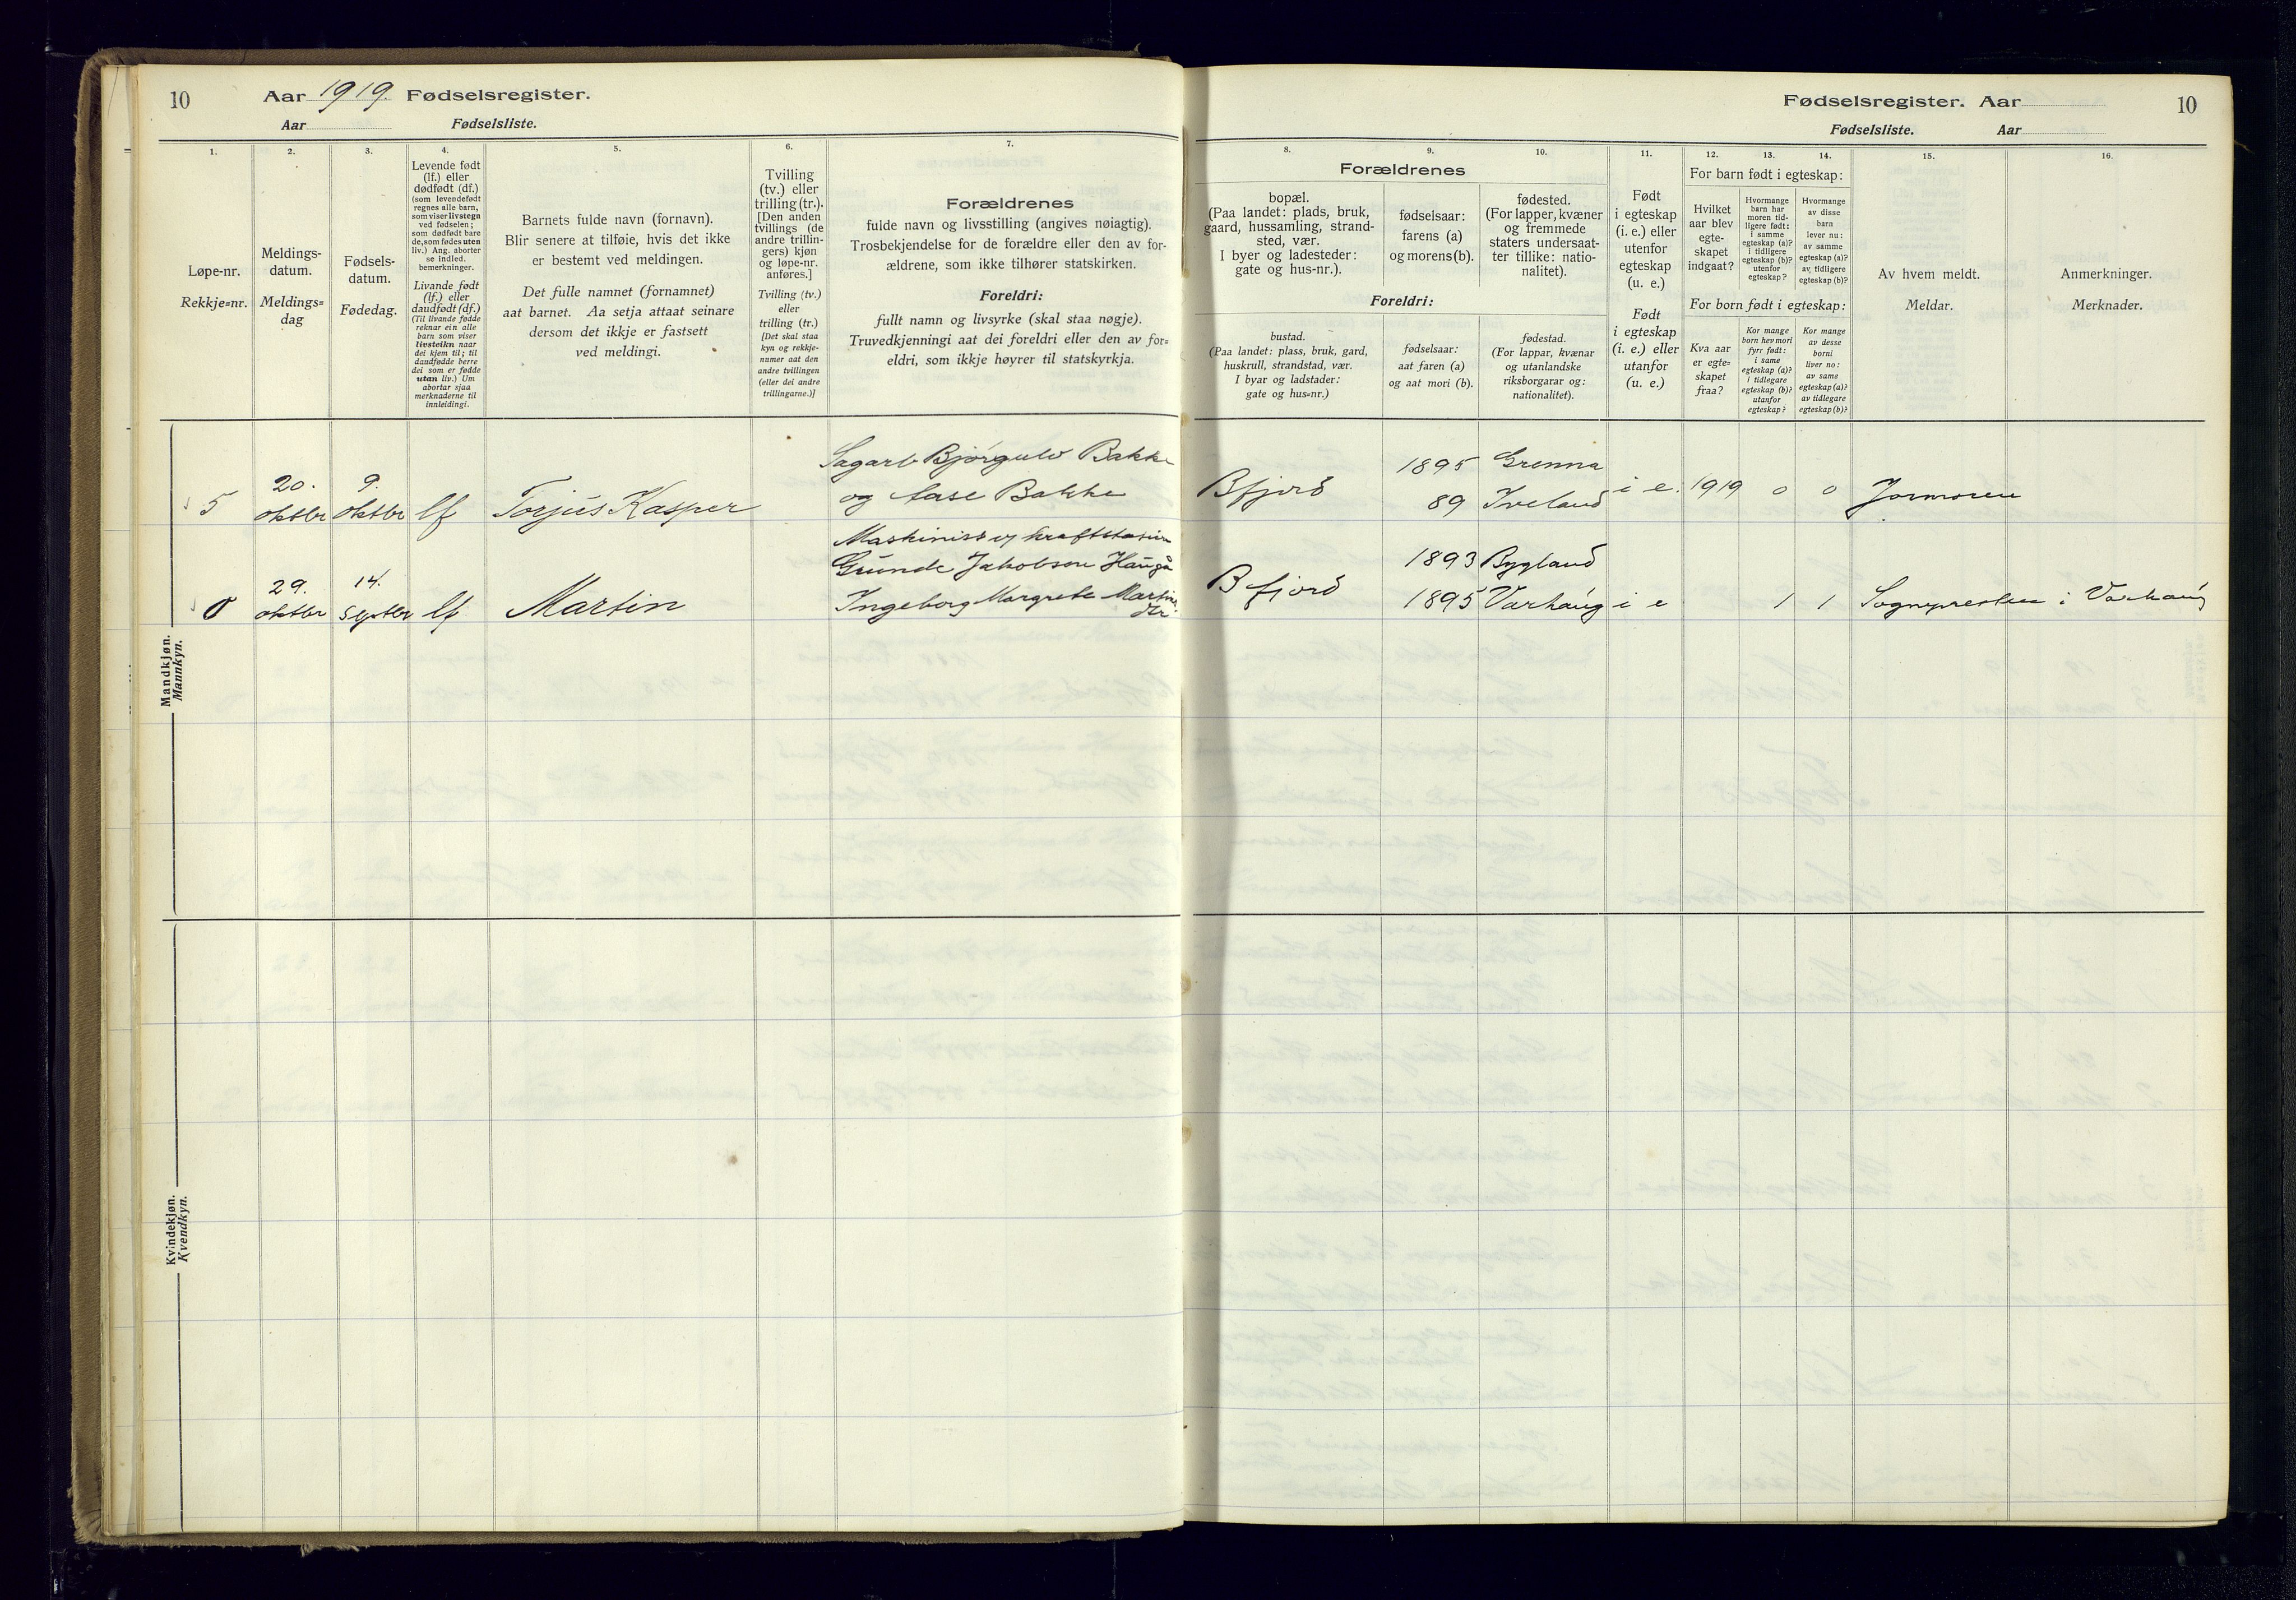 10
Aar 1919. Fødselsregister.
Aar Fødselsliste.
1.
Løpe-nr.
Rekkje=nr.
2.
Meldings-
datum.
Meldings=
dag
3.
Fødsels-
datum.
Fødedag.
4.
Levende født
(lf.) eller
dødfødt (df.)
(som levendefødt
regnes alle barn,
som viser livstegn
ved fødselen;
som dødfødt bare
de, som fødes uten
liv.) Ang. aborter
se indled.
bemerkninger.
Livande født
(lf.) eller
daudfødt (df.)
(Til livande fødde
reknar ein alle
barn som viser
livsteikn naar
dei kjem til; til
daudfødde berre
dei som er fødde
utan liv.) Um
abortar sjaa
merknaderne til
innleidingi.
5.
Barnets fulde navn (fornavn).
Blir senere at tilføie, hvis det ikke
er bestemt ved meldingen.
Det fulle namnet (fornamnet)
aat barnet. Aa setja attaat seinare
dersom det ikkje er fastsett
ved meldingi.
6.
Tvilling
(tv.) eller
trilling (tr.).
[Den anden
tvillings (de
andre trillin-
gers) kjøn
og løpe-nr.
anføres.]
Tvilling (tv.)
eller
trilling (tr.)
[Det skal staa
kyn og rekkje-
numer aat den
andre tvillingen
(eller dei andre
trillingarne.)]
7.
Forældrenes
fulde navn og livsstilling (angives nøiagtig).
Trosbekjendelse for de forældre eller den av for-
ældrene, som ikke tilhører statskirken.
Foreldri:
fullt namn og livsyrke (skal staa nøgje).
Truvedkjenningi aat dei foreldri eller den av for=
eldri, som ikkje høyrer til statskyrkja.
Mandkjøn.
Mannkyn.
5 20. oktbr 9. oktbr lf Torjus Kasper
Sagarb Bjørgulv Bakke
og Aase Bakke
29. oktbr 14. septbr lf Martin
Maskinist og kraftstasion
Gunde Jakobson Haugå
Ingeborg Margrete Martins
dtr
Kvindekjøn.
Kvendkyn.
Fødselsregister. Aar
10
Fødselsliste. Aar
8. 9. 10.
Forældrenes
bopæl.
(Paa landet: plads, bruk,
gaard, hussamling, strand-
sted, vær.
I byer og ladesteder:
gate og hus-nr.).
fødselsaar:
farens (a)
og morens (b).
fødested.
(For lapper, kvæner
og fremmede
staters undersaat-
ter tillike: natio-
nalitet).
Foreldri:
bustad.
(Paa landet: plass, bruk, gard,
huskrull, strandstad, vær.
I byar og ladstader:
gate og hus=nr.)
fødselsaar:
aat faren (a)
og aat mori (b).
fødestad.
(For lappar, kvænar
og utanlandske
riksborgarar og:
nationalitet).
11.
Født
i egteskap
(i. e.) eller
utenfor
egteskap
(u. e.)
Født
i egteskap
(i. e.) eller
utanfor
(u. e.)
12. 13. 14.
For barn født i egteskap:
Hvilket
aar blev
egte-
skapet
indgaat?
Hvormange
barn har
moren tid-
ligere født:
i samme
egteskap (a)?
i tidligere
egteskap (b)?
utenfor
egteskap?
Hvormange
av disse
barn
lever nu:
av samme
egteskap (a)?
av tidligere
egteskap (b)?
For born født i egteskap:
Kva aar
er egte=
skapet
fraa?
Kor mange
born hev mori
fyrr født:
i same
egteskap (a)?
i tidlegare
egteskap (b)?
utanfor
egteskap?
Kor mange
av desse
borni
liver no:
av same
egteskap (a)?
av tidlegare
egteskap (b)?
15.
Av hvem meldt.
Meldar.
16.
Anmerkninger.
Merknader.
Bfjord 1895 Grenna i e. 1919 0 0 Jormoren
89 Iveland
Bfjord 1893 Bygland
1895 Varhaug i e 1 1 Sognepresten i Varhaug